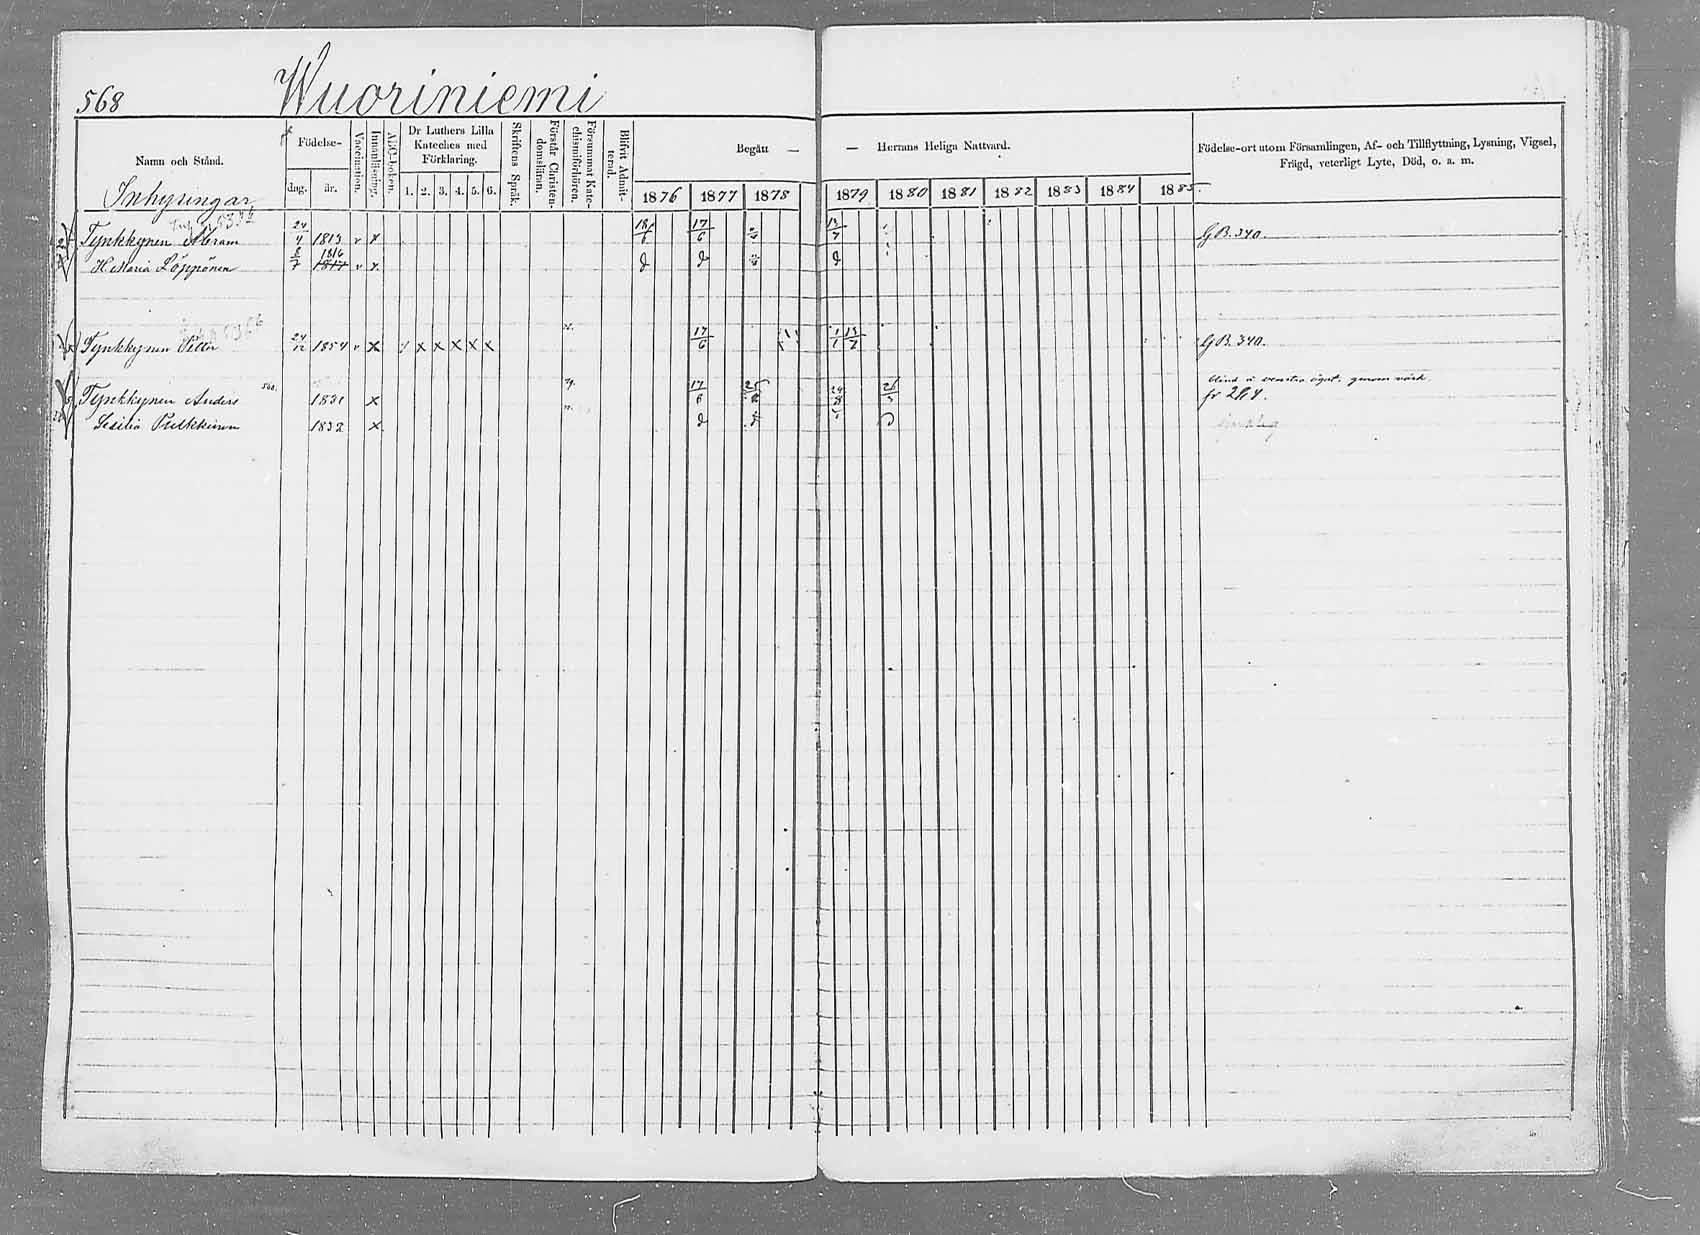 568 Wuoriniemi
Namn och Stånd.
Födelse-
dag. år.
Vaccination.
Innanläsning.
ABC-boken.
Dr Luthers Lilla Kateches med Förklaring.
1. 2. 3. 4. 5. 6.
Skriftens Språk.
Förstår Christendomsläran.
Försummat Katechismiförhören.
Blifvit Admitterad.
Begått — — Herrans Heliga Nattvard.
1876 1877 1878 1879 1880 1881 1882 1883 1884 1885
Födelse-ort utom Församlingen, Af- och Tillflyttning, Lysning, Vigsel,
Frägd, veterligt Lyte, Död, o. a. m.
Inhysingar
Tynkkynen Abram 24/4 1813 v x 18/6 17/6 13/7 GB. 340.
H. Maria Löppönen 8/7 1816 1817 v x d d d
Tynkkynen Petter 24/12 1854 v x x x x x x 17/6 1/1 13/7 GB. 340.
560.
blind å venstra ögat. genom
Tynkkynen Anders 1831 x 17/6 fr 264.
Cesilia Pulkkinen 1832 x d